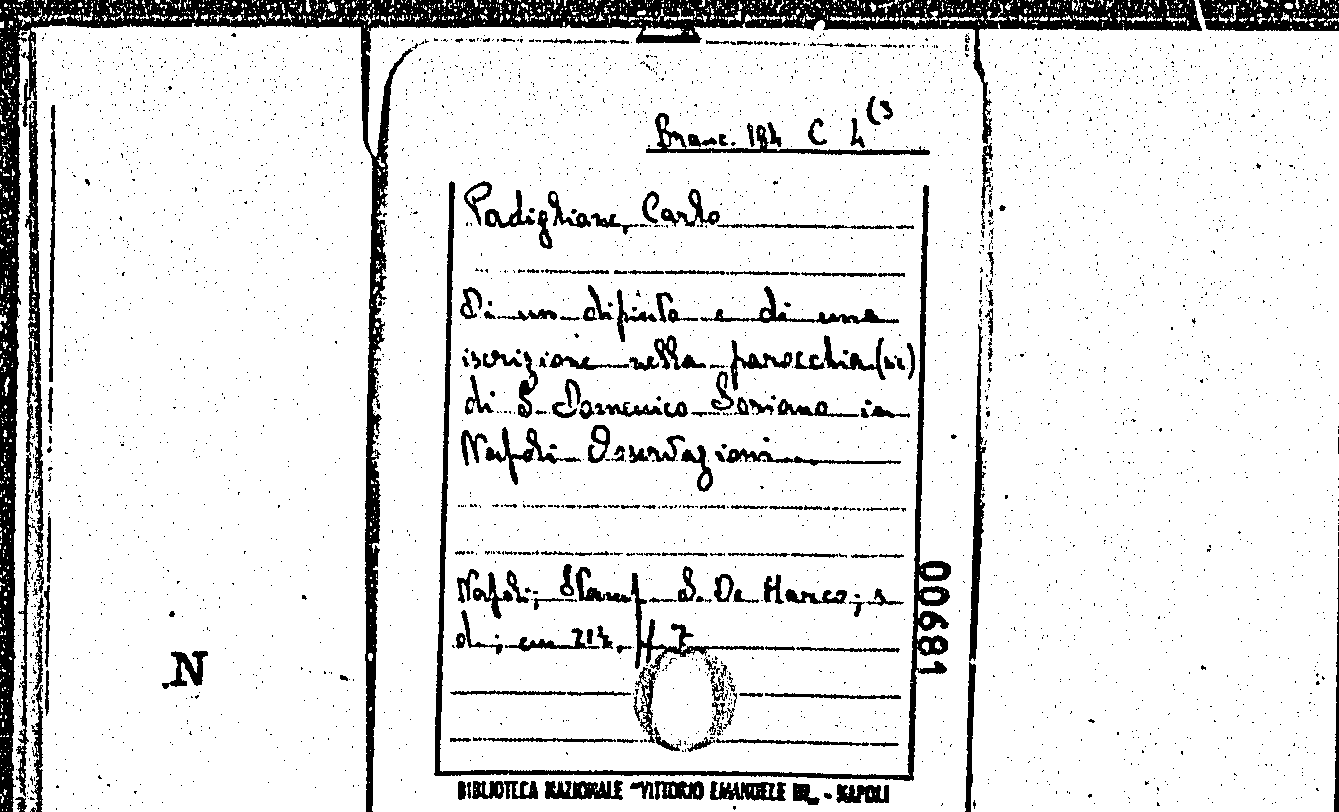 Branc. 184 C 4(3
Padiglione, Carlo
Di un dipinto e di una
iscrizione nella parocchia (sic)
di S. Domenico Soriano in
Napoli Osservazioni
Napoli; Stamp. S. De Marco; s
d.; cm 214. pp 7
00681
N
BIBLIOTECA NAZIONALE "VITTORIO EMANUELE III" - NAPOLI